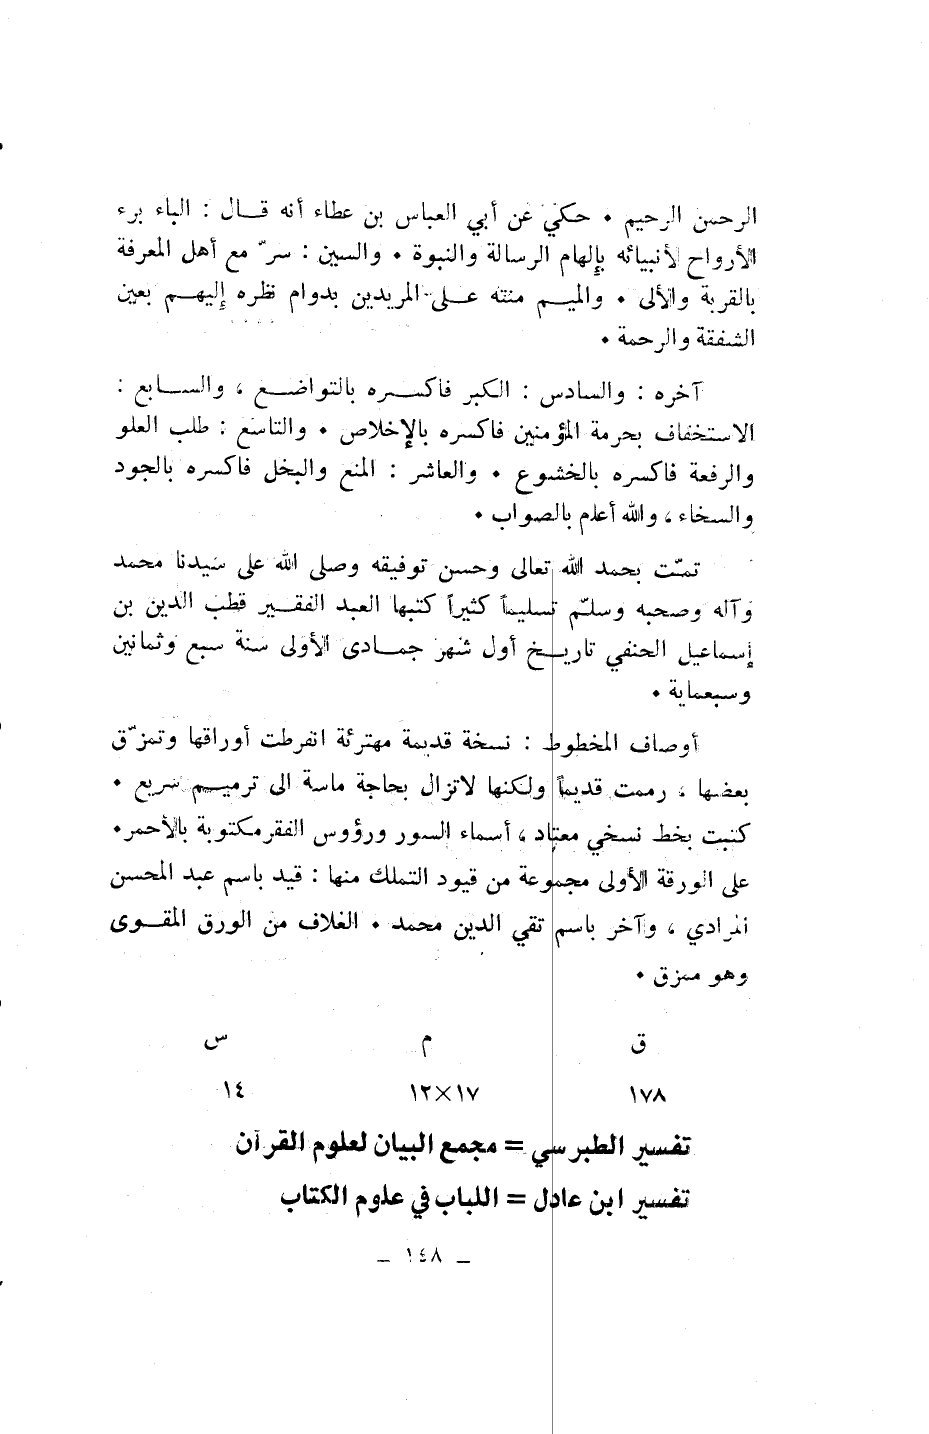 الرحمن الرحيم • حكي عن أبي العباس بن عطاء أنه قــال : الباء برء
الأرواح لأنبيائه بإلهام الرسالة والنبوة • والسين : سرّ مع أهل المعرفة
بالقربة والألى • والميــم منته عــلى المريدين بدوام نظره إليهــم بعين
الشفقة والرحمة •
آخره : والسادس : الكبر فاكســره بالتواضــع ، والســابع :
الاستخفاف بحرمة المؤمنين فاكسره بالإخلاص • والتاسع : طلب العلو
والرفعة فاكسره بالخشوع • والعاشر : المنع والبخل فاكسره بالجود
والسخاء ، والله أعلم بالصواب •
تمّت بحمد الله تعالى وحسن توفيقه وصلى الله على سيدنا محمد
وآله وصحبه وسلّم تسليماً كثيراً كتبها العبد الفقــير قطب الدين بن
إسماعيل الحنفي تاريــخ أول شهر جمــادى الأولى سنة سبع وثمانين
وسبعماية •
أوصاف المخطوط : نسخة قديمة مهترئة انفرطت أوراقها وتمزّق
بعضها ، رممت قديماً ولكنها لاتزال بحاجة ماسة الى ترميــم سريع •
كتبت بخط نسخي معتاد ، أسماء السور ورؤوس الفقر مكتوبة بالأحمر •
على الورقة الأولى مجموعة من قيود التملك منها : قيد باسم عبد المحسن
المرادي ، وآخر باسم تقي الدين محمد • الغلاف من الورق المقــوى
وهو ممزق •
ق م س
١٧٨ ١٧×١٢ ١٤
تفسير الطبرسي = مجمع البيان لعلوم القرآن
تفسير ابن عادل = اللباب في علوم الكتاب
– ١٤٨ –